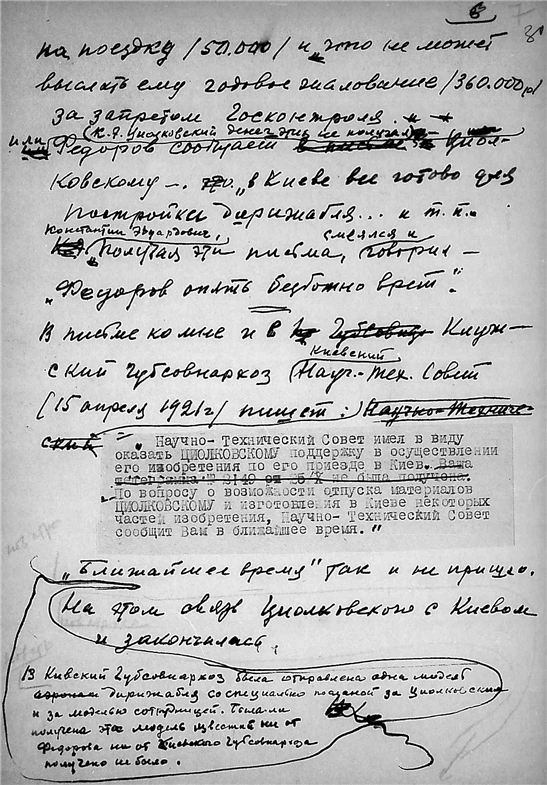 6
на поездку /50.000/ и „что не может
выслать ему годовое жалование /360.000 р/
за запретом Госконтроля.
(К.Э. Циолковский денег этих не получал)
или Федоров сообщает в письме Циол-
ковскому —. что „в Киеве все готово для
постройки дирижабля... и т. п.
Константин Эдуардович, смеялся и
„Получая эти письма, говорил —
„Федоров опять безбожно врет".
В письме ко мне и в Губсовнар Калуж-
ский Губсовнархоз Киевский Науч.-Тех. Совет
(15 апреля 1921 г/ пишет:) Научно-Техниче-
ский
„ Научно-Технический Совет имел в виду
оказать ЦИОЛКОВСКОМУ поддержку в осуществлении
его изобретения по его приезде в Киев. Ваша
не была получена.
По вопросу о возможности отпуска материалов
ЦИОЛКОВСКОМУ и изготовления в Киеве некоторых
частей изобретения, Научно-Технический Совет
сообщит Вам в ближайшее время. "
„Ближайшее время" так и не пришло.
На этом связь Циолковского с Киевом
и закончилась.
В Киевский Губсовнархоз была отправлена одна модель
дирижабля со специально посланной за Циолковским
и за моделью сотрудницей. Была ли
получена эта модель известий ни от
Федорова ни от Киевского Губсовнархоза
получено не было.